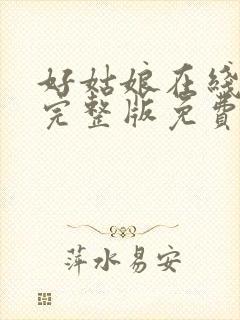 好姑娘在线
完整版免费
萍水易安